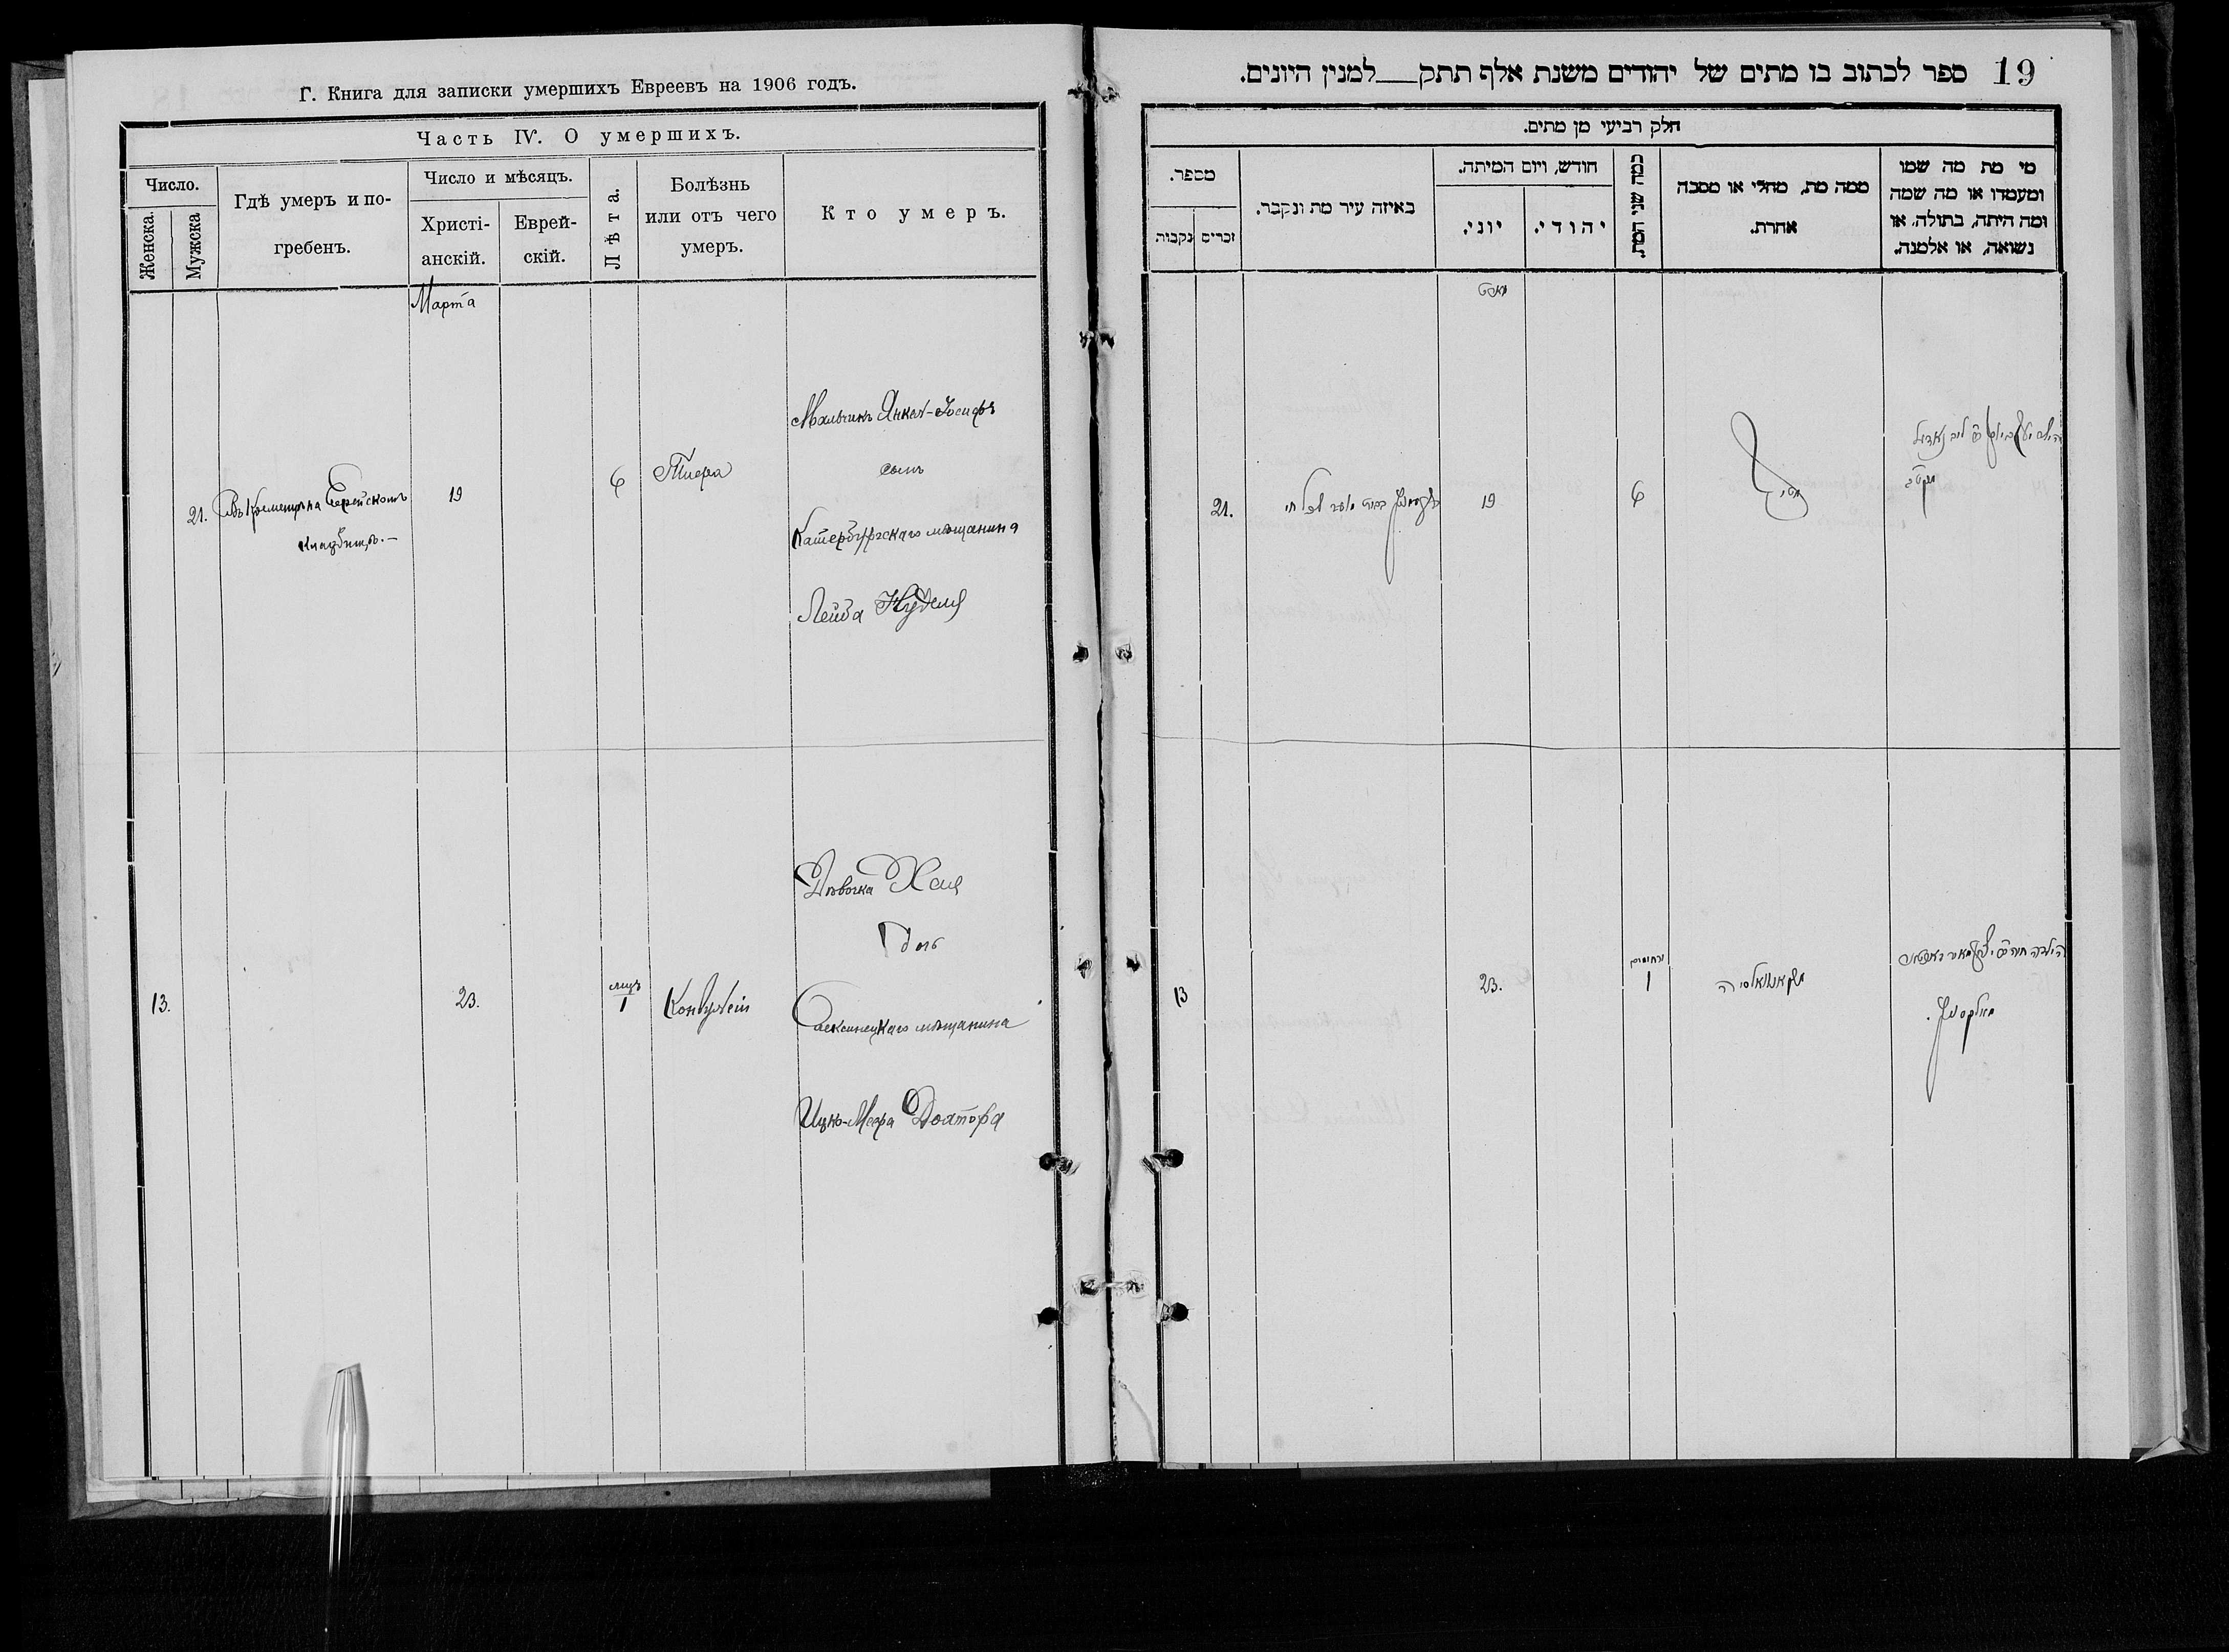 Г. Книга для записки умершихъ Евреевъ на 1906 годъ.
Часть IV. О умершихъ.
Число.
Женска.
Мужска
Гдѣ умеръ и по-
гребенъ.
Число и мѣсяцъ.
Христі-
анскій.
Еврей-
скій.
Лѣта.
Болѣзнь
или отъ чего
умеръ.
Кто умеръ.
Марта
21.
Въ Кременцѣ на Еврейскомъ
кладбищѣ.—
19
6
Тифа
Мальчикъ Янкель-Іосифъ
сынъ
Катербургскаго мѣщанина
Лейба Нуделя
13.
23.
мцъ
1
Конвульсій
Дѣвочка Хая
дочь
мѣщанина
Ицко-Меера
19 ספר לכתוב בו מתים של יהודים משנת אלף תתק—למנין היונים.
חלק רביעי מן מתים.
מספר.
נקבות
זכרים
באיזה עיר מת ונקבר.
חודש, ויום המיתה.
יוני.
יהודי.
כמה שני המת.
ממה מת, מחלי או מסבה
אחרת.
מי מת מה שמו
ומעמדו או מה שמה
ומה היתה, בתולה, או
נשואה, או אלמנה.
21.
19
6
13
23.
1
הילדה חיה